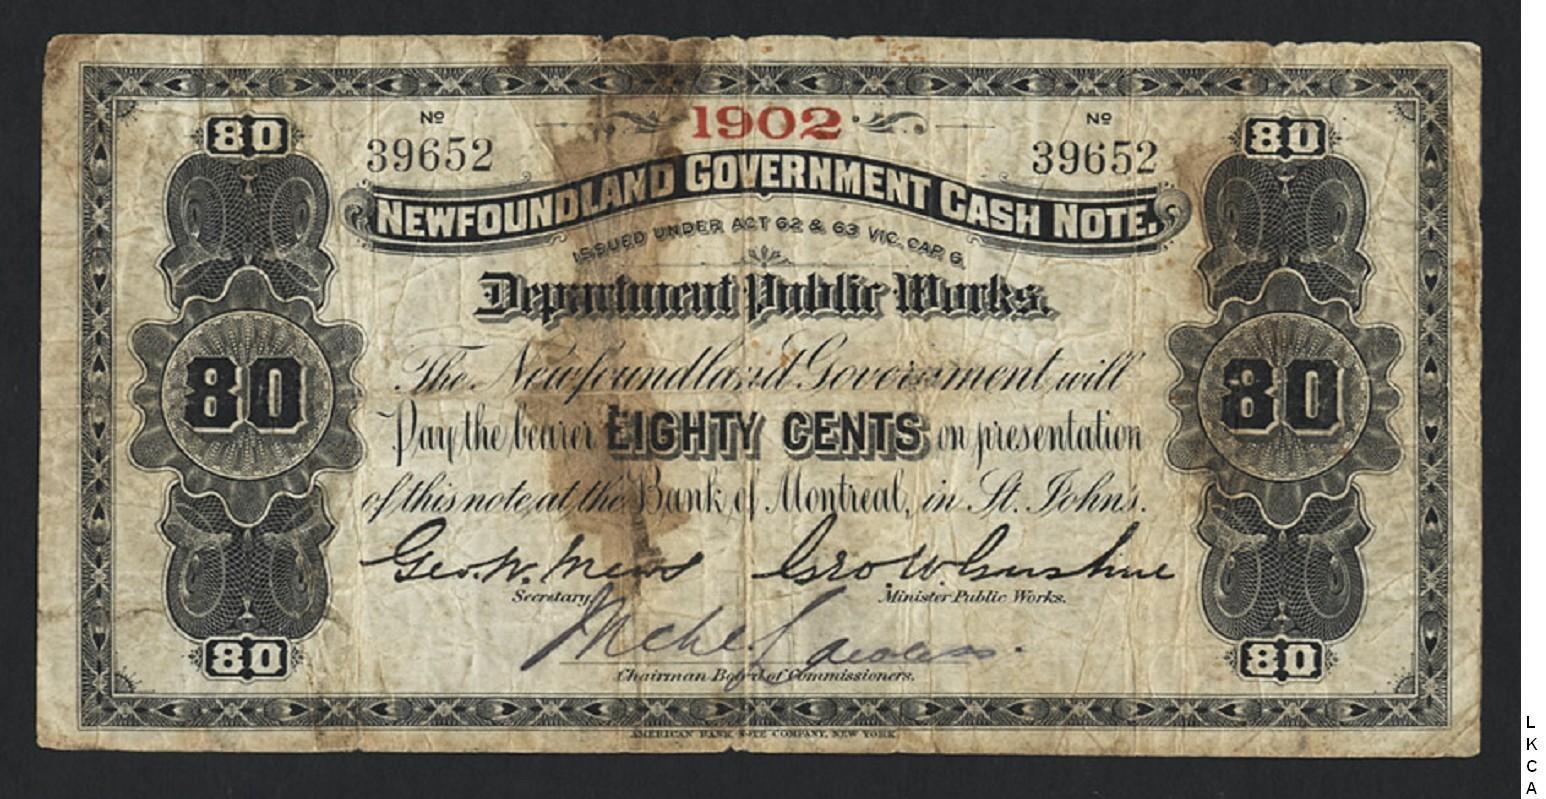 80 Nº 1902 Nº 80
39652 39652
NEWFOUNDLAND GOVERNMENT CASH NOTE.
ISSUED UNDER ACT 62 & 63 VIC. CAP. 6.
Department Public Works.
The Newfoundland Government will
80 Pay the bearer EIGHTY CENTS on presentation 80
of this note, at the Bank of Montreal, in St. John's.
Geo. W. Mews Geo W Gushue
Secretary. Minister Public Works.
80 80
Chairman Board of Commissioners.
AMERICAN BANK NOTE COMPANY, NEW YORK.
L
K
C
A